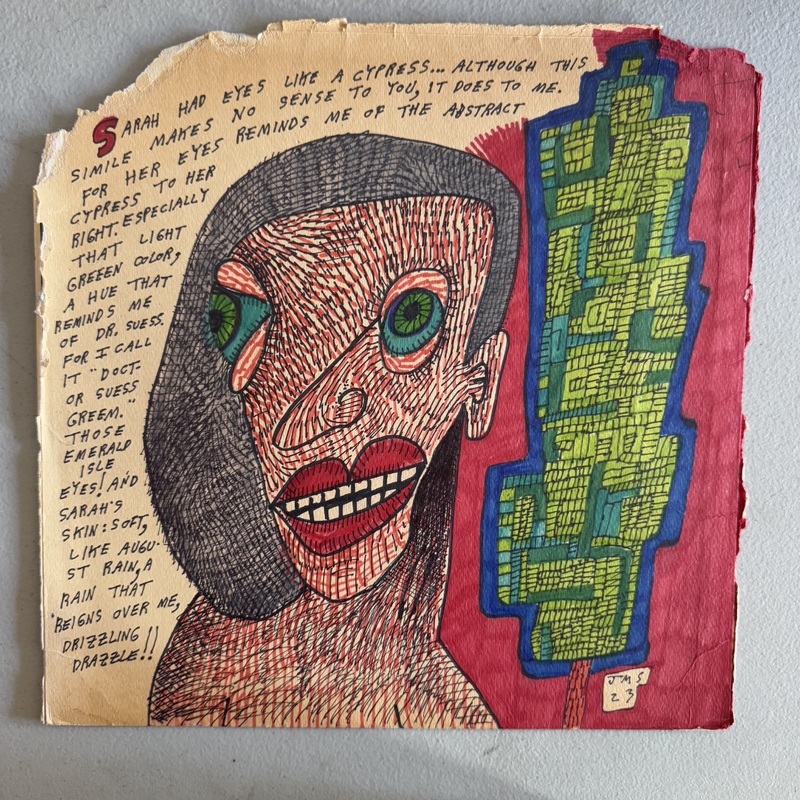 SARAH HAD EYES LIKE A CYPRESS... ALTHOUGH THIS
SIMILE MAKES NO SENSE TO YOU, IT DOES TO ME.
FOR HER EYES REMINDS ME OF THE ABSTRACT
CYPRESS TO HER
RIGHT. ESPECIALLY
THAT LIGHT
GREEEN COLOR,
A HUE THAT
REMINDS ME
OF DR. SUESS.
FOR I CALL
IT "DOCT-
OR SUESS
GREEM."
THOSE
EMERALD
ISLE
EYES! AND
SARAH'S
SKIN: SOFT,
LIKE AUGU-
ST RAIN, A
RAIN THAT
REIGNS OVER ME,
DRIZZLING
DRAZZLE!!
JMS
23